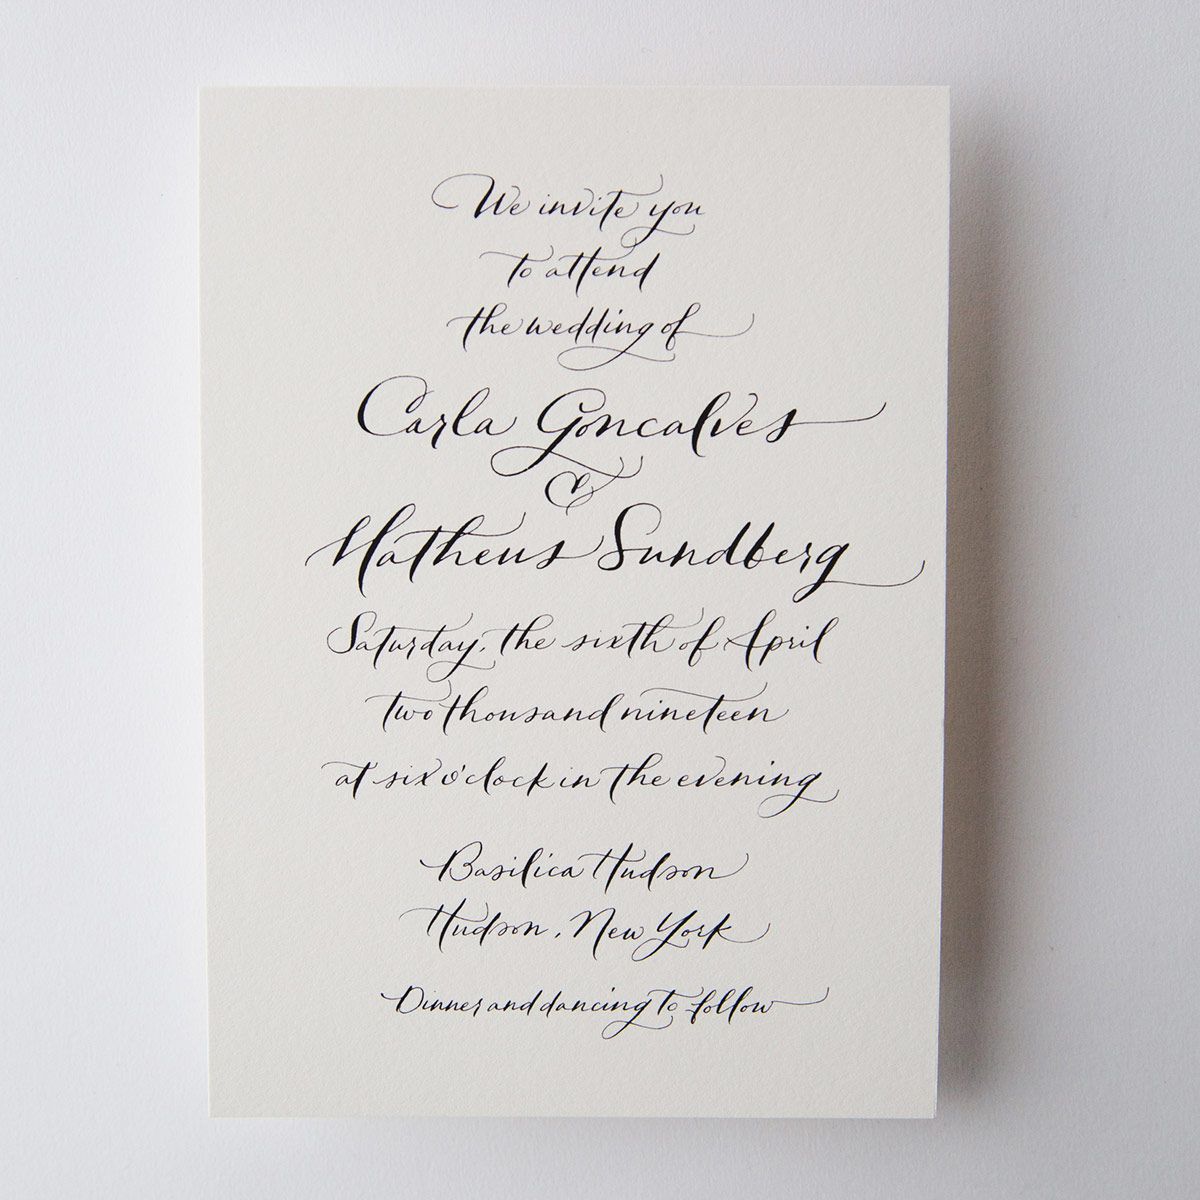 We invite you
to attend
the wedding of
Carla Goncalves
&
Matheus Sundberg
Saturday, the sixth of April
two thousand nineteen
at six o'clock in the evening
Basilica Hudson
Hudson, New York
Dinner and dancing to follow